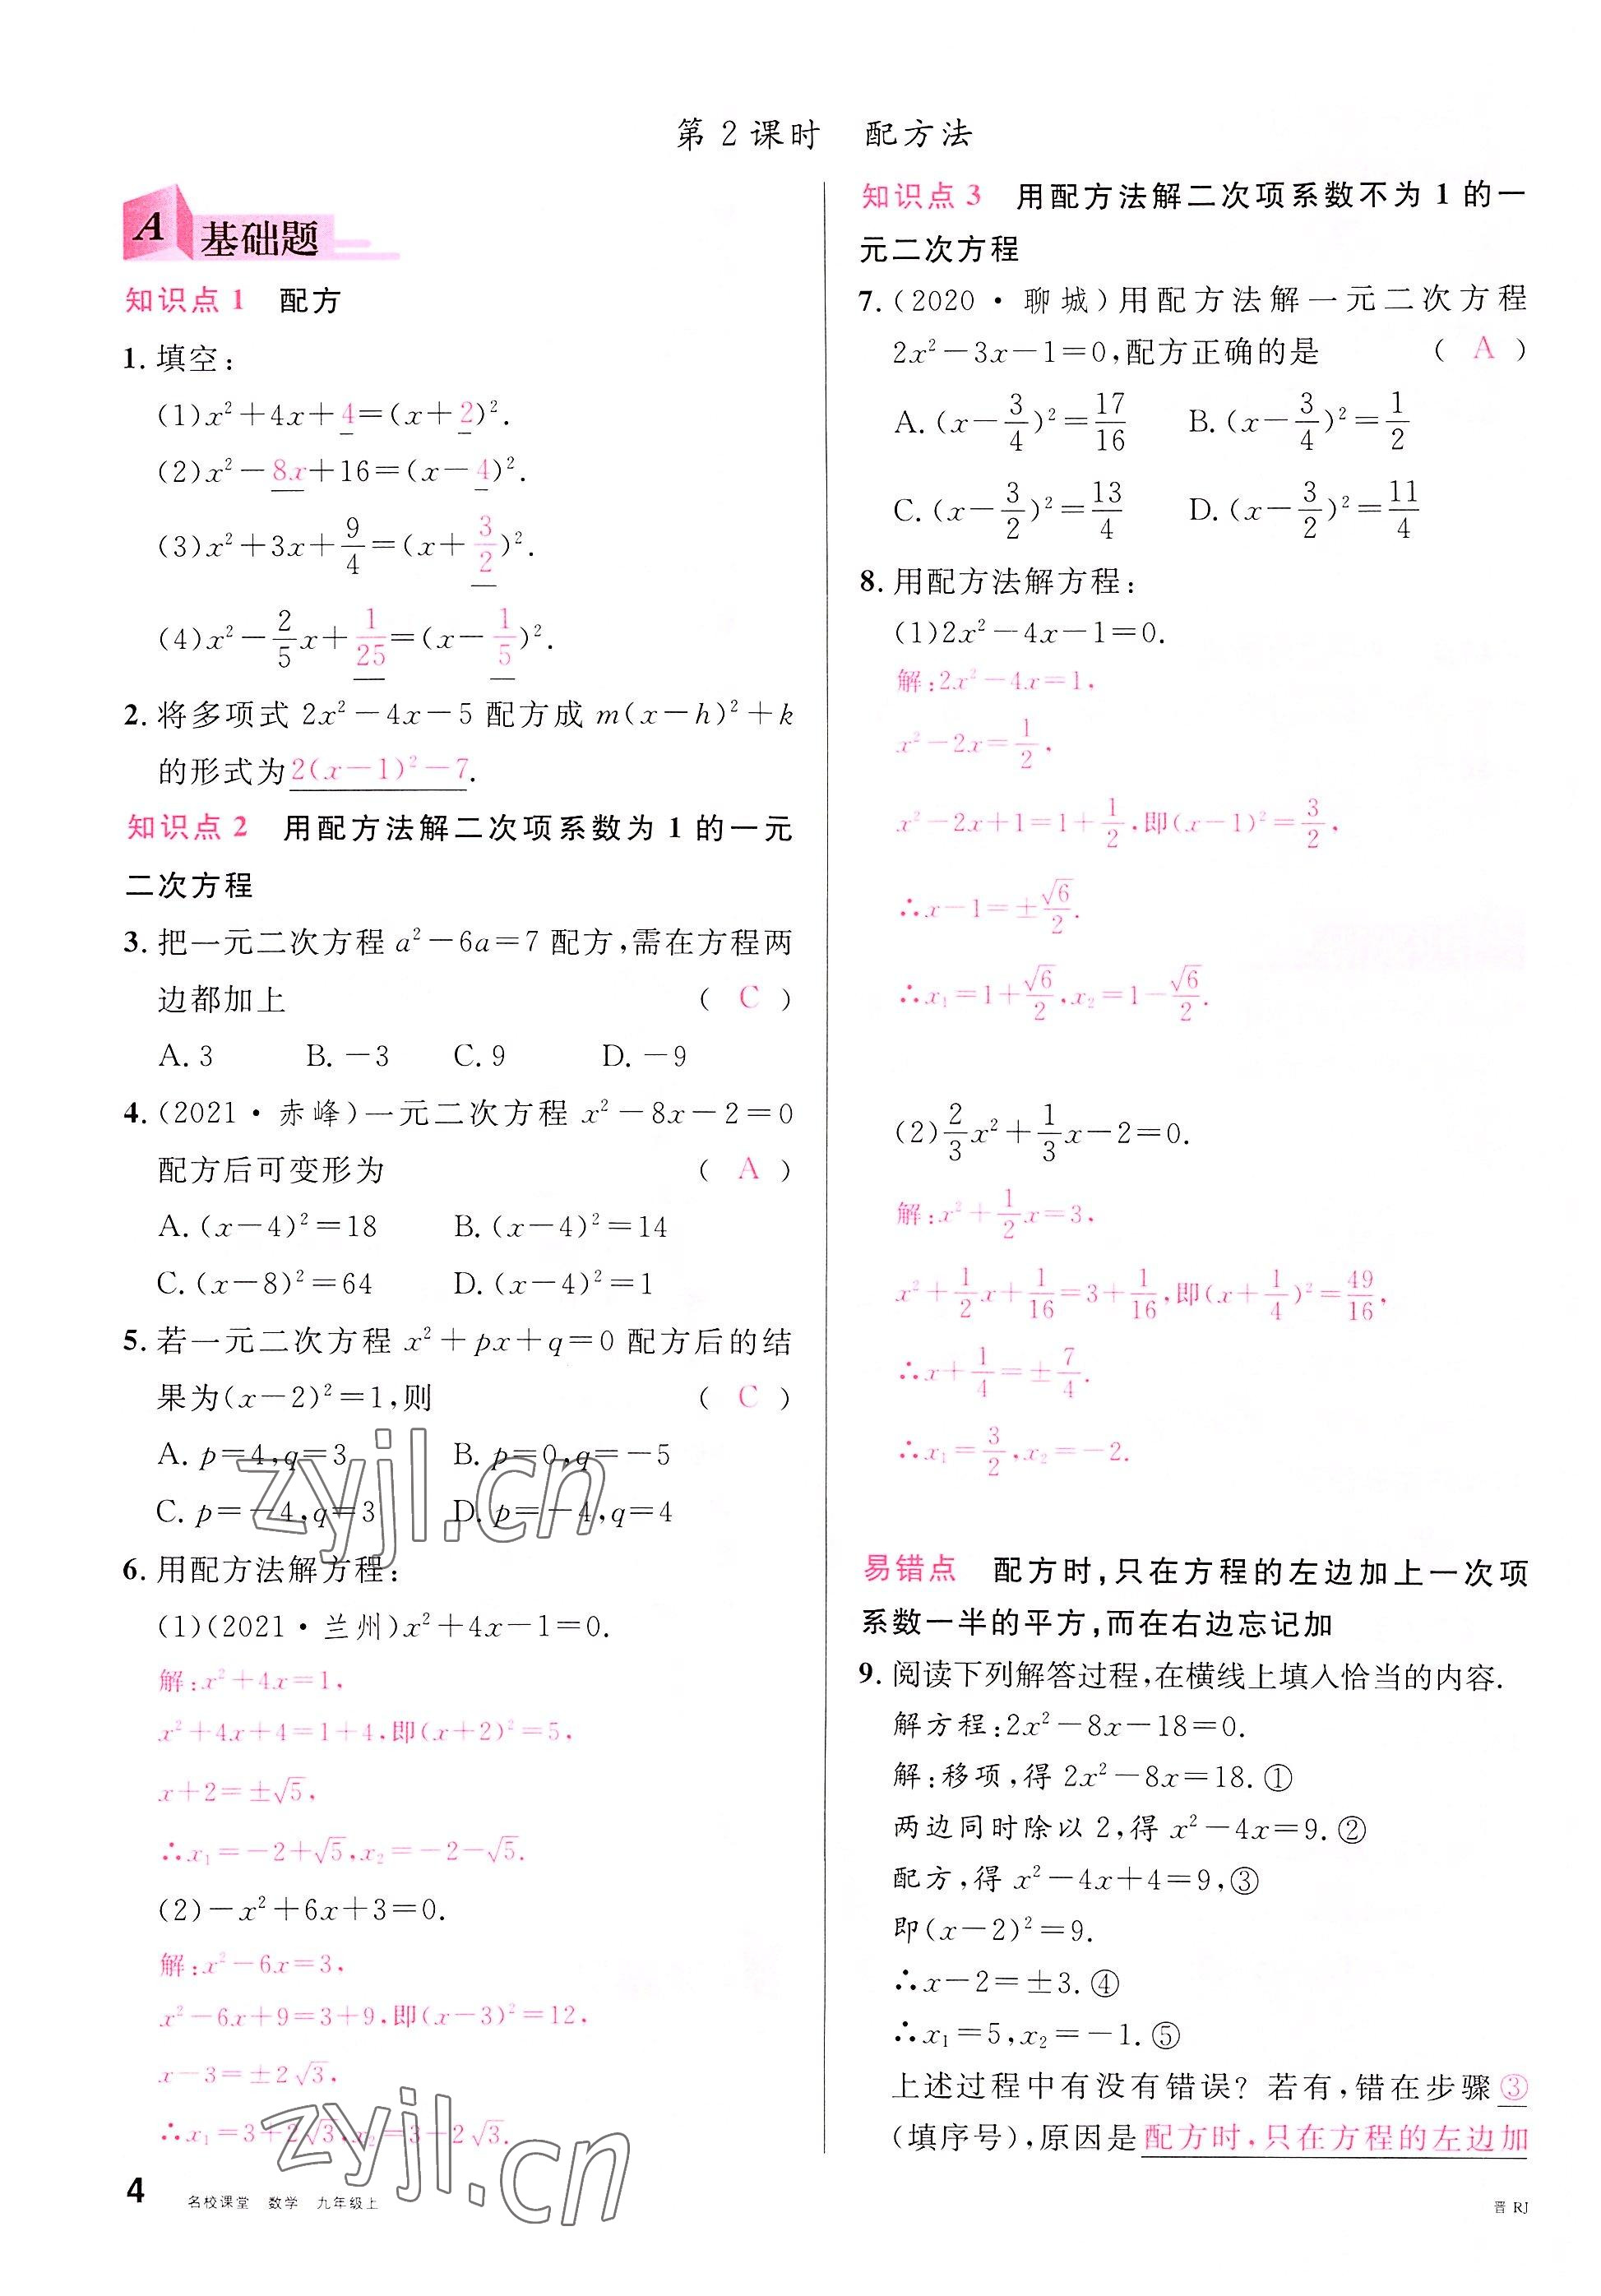 第2课时 配方法
A 基础题
知识点1 配方
1. 填空:
(1)x²+4x+4=(x+2)².
(2)x²-8x+16=(x-4)².
(3)x²+3x+9/4=(x+3/2)².
(4)x²-2/5x+1/25=(x-1/5)².
2. 将多项式 2x²-4x-5 配方成 m(x-h)²+k
的形式为2(x-1)²-7.
知识点2 用配方法解二次项系数为1的一元
二次方程
3. 把一元二次方程 a²-6a=7 配方,需在方程两
边都加上 ( C )
A. 3 B. -3 C. 9 D. -9
4. (2021·赤峰)一元二次方程 x²-8x-2=0
配方后可变形为 ( A )
A. (x-4)²=18 B. (x-4)²=14
C. (x-8)²=64 D. (x-4)²=1
5. 若一元二次方程 x²+px+q=0 配方后的结
果为(x-2)²=1,则 ( C )
A. p=4,q=3 B. p=0,q=-5
C. p=-4,q=3 D. p=-4,q=4
6. 用配方法解方程:
(1)(2021·兰州)x²+4x-1=0.
解:x²+4x=1,
x²+4x+4=1+4,即(x+2)²=5,
x+2=±√5,
∴x₁=-2+√5,x₂=-2-√5.
(2)-x²+6x+3=0.
解:x²-6x=3,
x²-6x+9=3+9,即(x-3)²=12,
x-3=±2√3,
∴x₁=3+2√3,x₂=3-2√3.
知识点3 用配方法解二次项系数不为1的一
元二次方程
7. (2020·聊城)用配方法解一元二次方程
2x²-3x-1=0,配方正确的是 ( A )
A. (x-3/4)²=17/16 B. (x-3/4)²=1/2
C. (x-3/2)²=13/4 D. (x-3/2)²=11/4
8. 用配方法解方程:
(1)2x²-4x-1=0.
解:2x²-4x=1,
x²-2x=1/2,
x²-2x+1=1+1/2,即(x-1)²=3/2,
∴x-1=±√6/2.
∴x₁=1+√6/2,x₂=1-√6/2.
(2)2/3x²+1/3x-2=0.
解:x²+1/2x=3,
x²+1/2x+1/16=3+1/16,即(x+1/4)²=49/16,
∴x+1/4=±7/4.
∴x₁=3/2,x₂=-2.
易错点 配方时,只在方程的左边加上一次项
系数一半的平方,而在右边忘记加
9. 阅读下列解答过程,在横线上填入恰当的内容.
解方程:2x²-8x-18=0.
解:移项,得 2x²-8x=18.①
两边同时除以2,得 x²-4x=9.②
配方,得 x²-4x+4=9,③
即(x-2)²=9.
∴x-2=±3.④
∴x₁=5,x₂=-1.⑤
上述过程中有没有错误?若有,错在步骤③
(填序号),原因是配方时,只在方程的左边加
zyjl.cn
zyjl.cn
4 名校课堂 数学 九年级上
晋 RJ